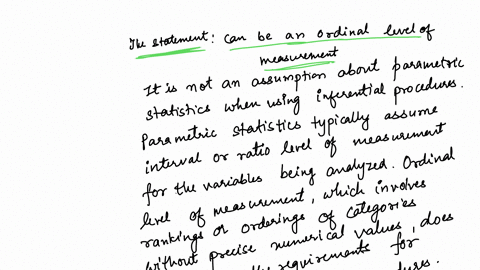 The statement: can be an ordinal level of
measurement
It is not an assumption about parametric
statistics when using inferential procedures.
Parametric statistics typically assume
interval or ratio level of measurement
for the variables being analyzed. Ordinal
level of measurement, which involves
rankings or orderings of categories
without precise numerical values, does
requirements for